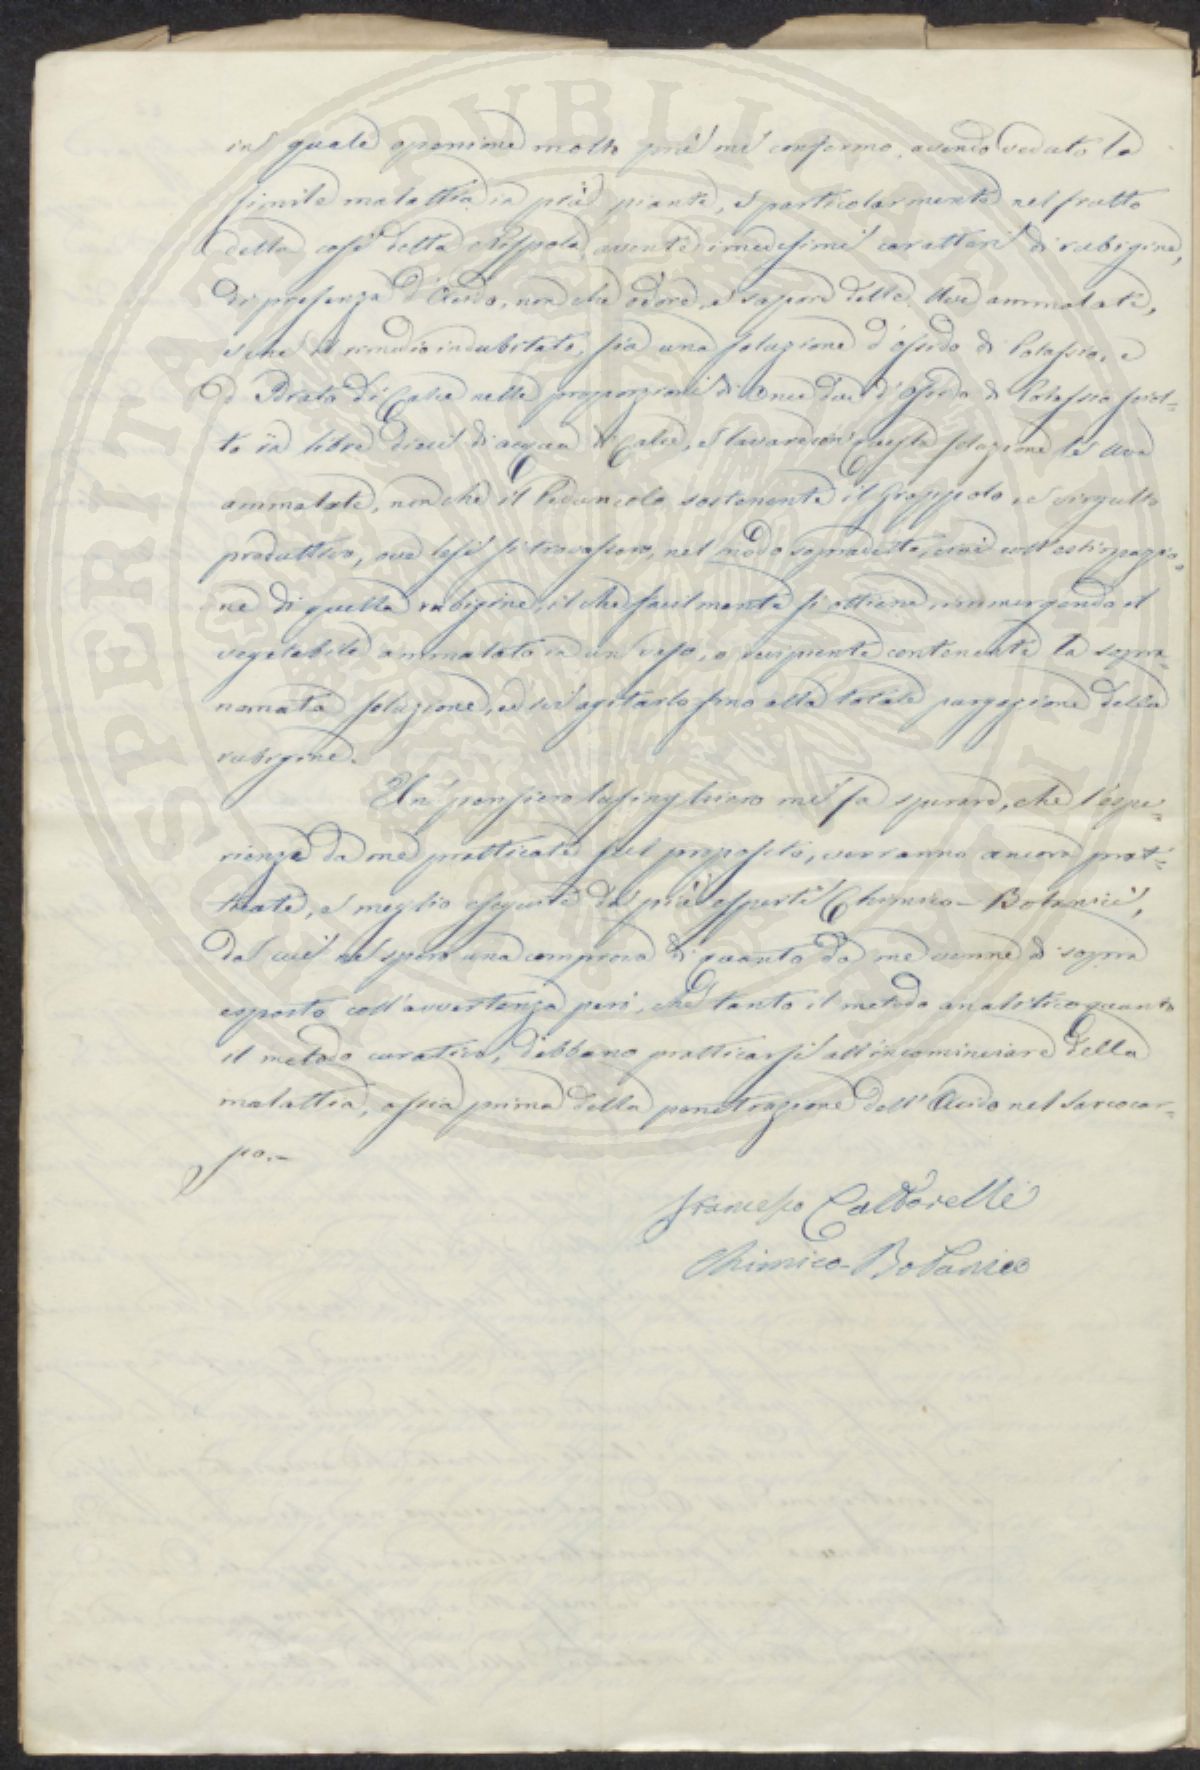 in quale openione molto più mi confermo, avendo veduto la
simile malattia in più piante, e particolarmente nel frutto
della così detta Nespola, avente i medesimi caratteri di rubigine,
di presenza d'Acido, non che odore, e sapore delle Uve ammalate,
e che il rimedio indubitato, sia una soluzione d'ossido di Potassio, e
d'Idrato di Calce nelle proporzioni di Once due d'Ossido di Potassio sciol=
to in libre dieci di acqua di Calce, e lavare con questa soluzione le Uve
ammalate, non che il Peduncolo sostenente il Grappolo ed virgulto
produttivo, ove lesi si trovassero, nel modo sopradetto, cioè coll'estirpazio=
ne di quella rubigine, il che facilmente si ottiene immergendo il
vegetabile ammalato in un vaso, o recipiente contenente la sopra=
nomata soluzione, ed ivi agitarlo fino alla totale purgazione della
rubigine.
Un pensiero lusinghiero mi fa sperare, che l'espe=
rienze da me pratticate sul proposito, verranno ancora prat=
ticate, e meglio eseguite da più esperti Chimico-Botanici,
da cui ne spero una comprova di quanto da me venne di sopra
esposto coll'avvertenza però, che tanto il metodo analitico quanto
il metodo curativo, debbano pratticarsi all'incominciare della
malattia, ossia prima della penetrazione dell'Acido nel Sarcocar=
po.-
Francesco Caldarelli
Chimico-Botanico
SPERITATI PVBLICAE